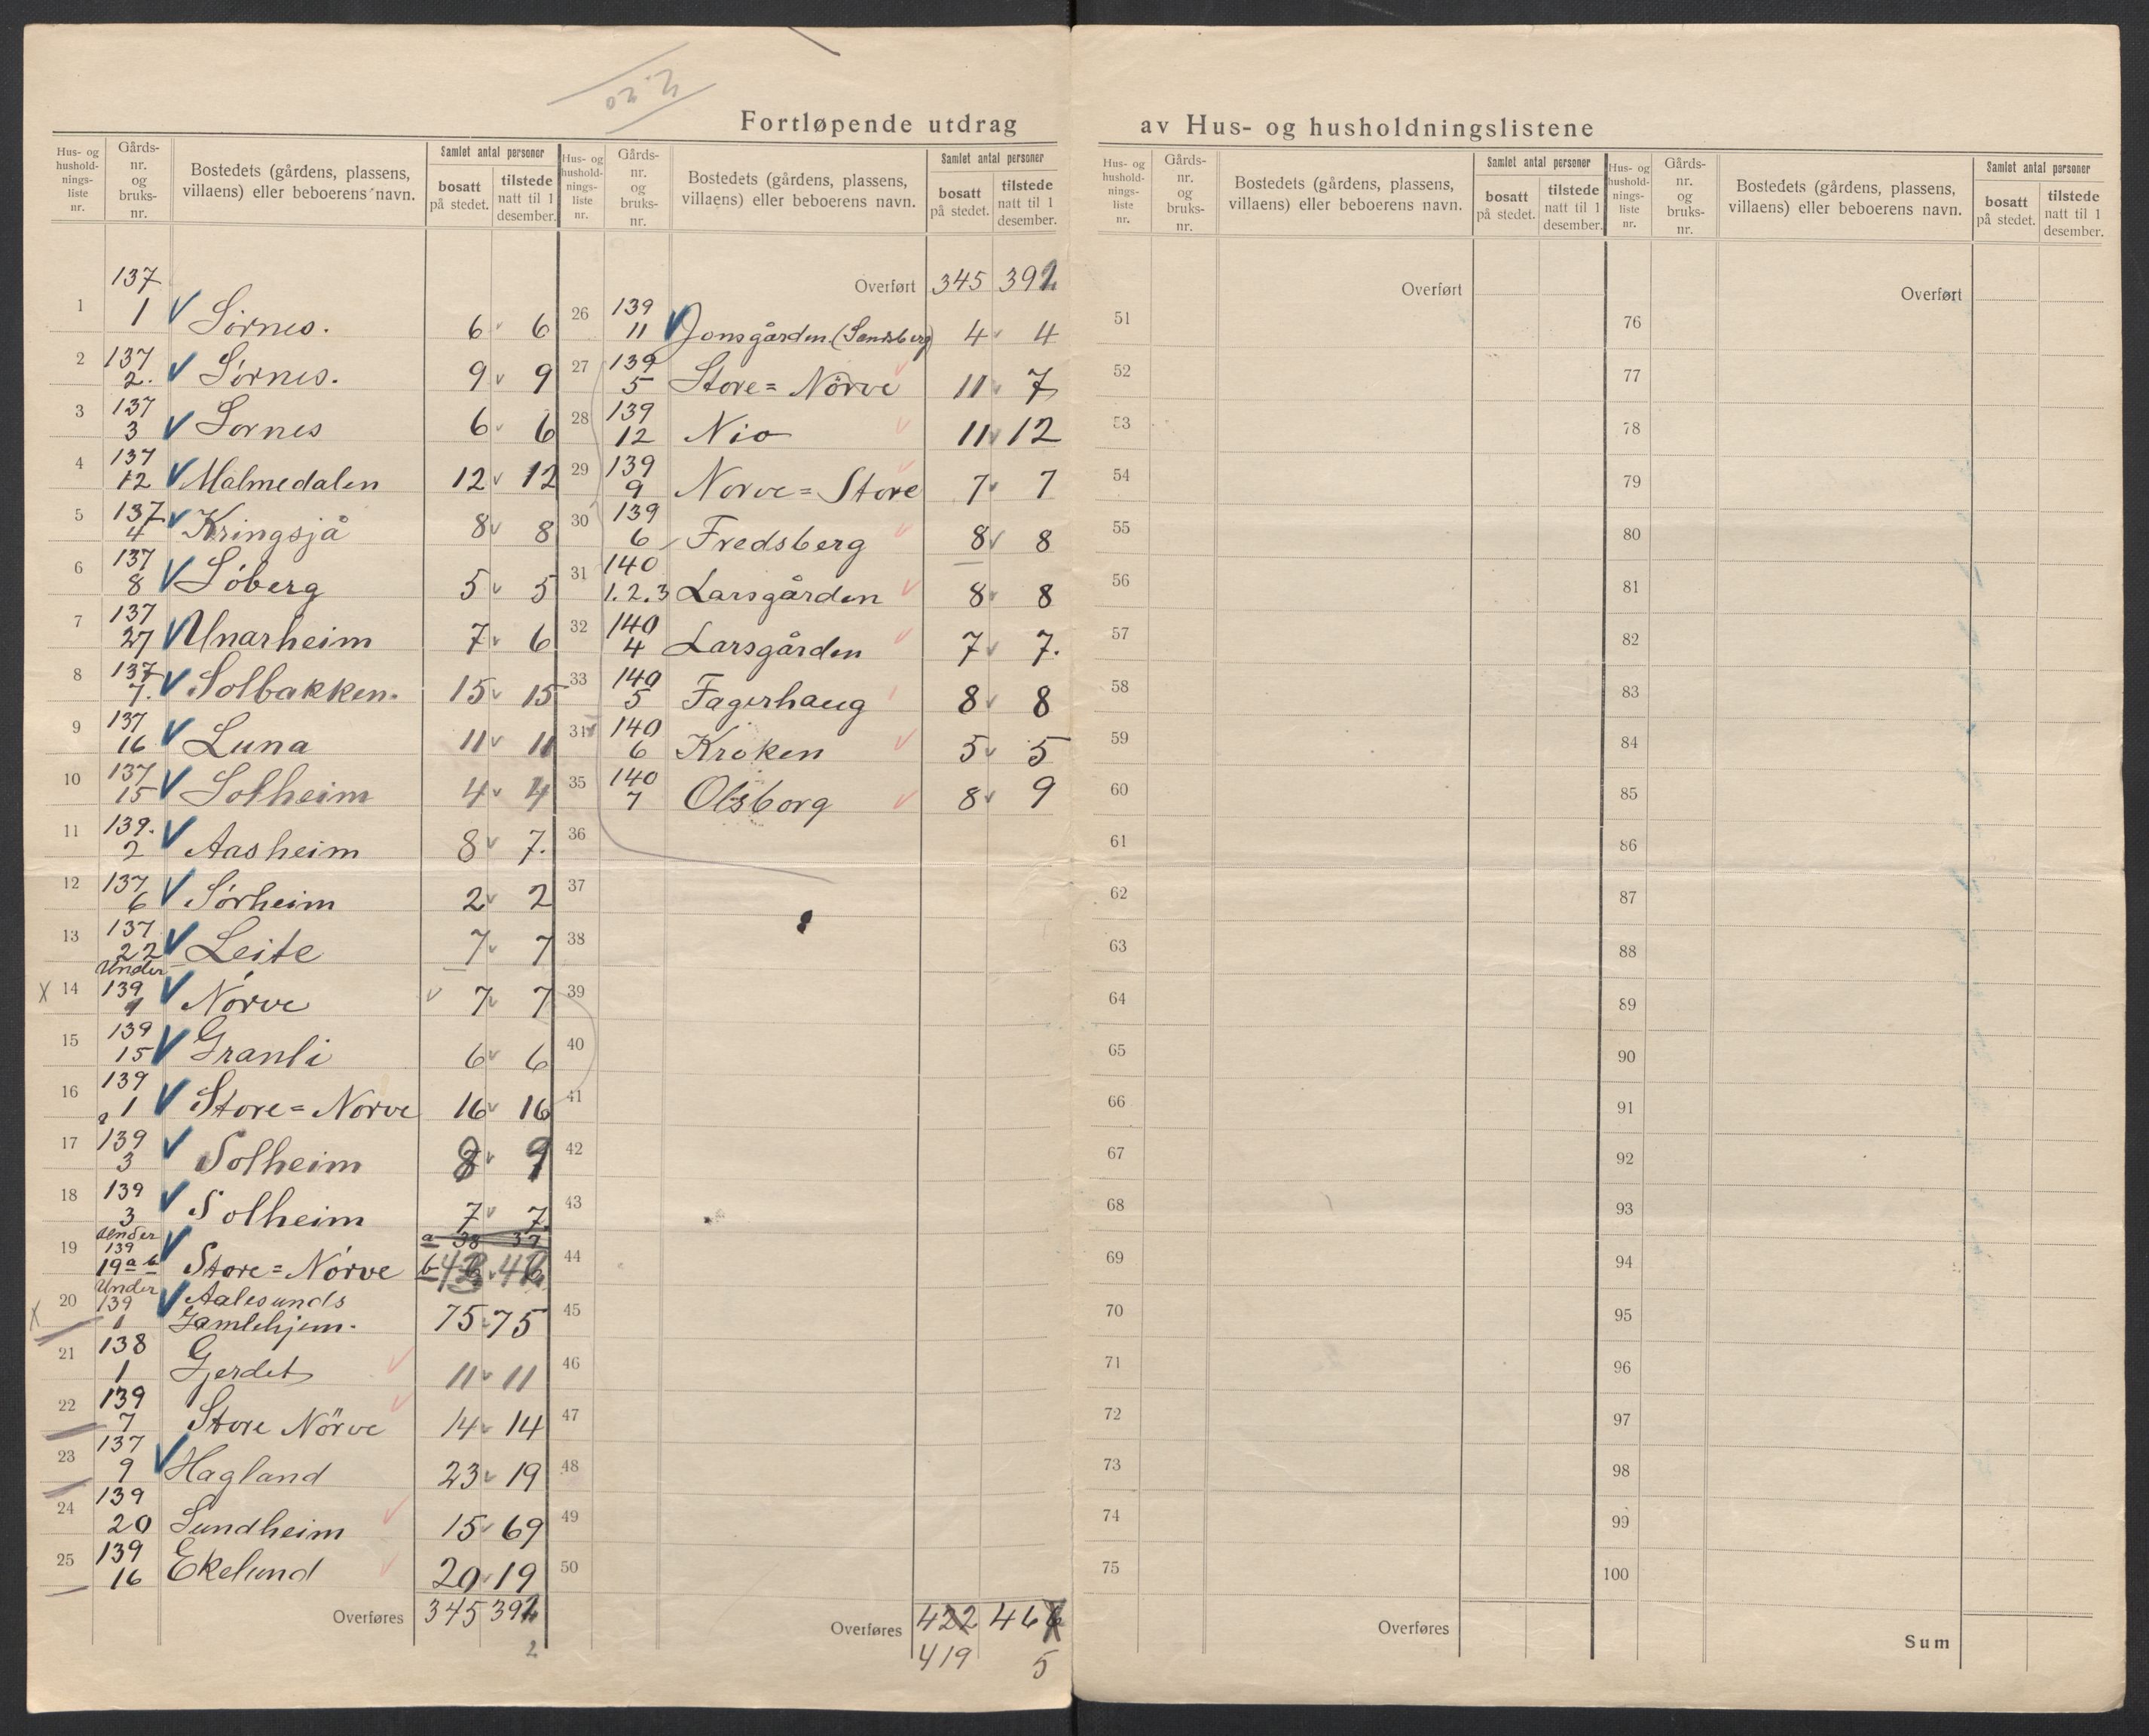 Fortløpende utdrag av Hus- og husholdningslistene
Hus- og hushold-nings-liste nr. | Gårds-nr. og bruks-nr. | Bostedets (gårdens, plassens, villaens) eller beboerens navn. | Samlet antal personer: bosatt på stedet. | tilstede natt til 1 desember.
1 137 1 Sørnes. 6 6
2 137 2. Sørnes. 9 9
3 137 3 Sørnes 6 6
4 137 12 Malmedalen 12 12
5 137 4 Kringsjå 8 8
6 137 8 Söberg 5 5
7 137 27 Unarheim 7 6
8 137 7. Solbakken. 15 15
9 137 16 Luna 11 11
10 137 15 Solheim 4 4
11 139. 2 Aasheim 8 7.
12 137 6 Sørheim 2 2
13 137 22 Leite 7 7
X 14 Under 139 1 Nørve 7 7
15 139 15 Granli 6 6
16 139 1 Store=Nørve 16 16
17 139 3 Solheim 8 9
18 139 3 Solheim 7 7
19 Under 139 19 a b Store=Nørve a 38 37 b
X 20 Under 139 1 Aalesunds Gamlehjem. 75 75
21 138 1 Gjerdet 11 11
22 139 7 Store Nörve 14 14
23 137 9 Hagland 23 19
24 139 20 Sundheim 15 69
25 139 16 Ekelund 20 19
Overføres 345 392
2
Hus- og hushold-nings-liste nr. | Gårds-nr. og bruks-nr. | Bostedets (gårdens, plassens, villaens) eller beboerens navn. | Samlet antal personer: bosatt på stedet. | tilstede natt til 1 desember.
Overført 345 392
26 139 11 Jonsgården (Sandsberg) 4 4
27 139 5 Store=Nörve 11 7
28 139 12 Nio 11 12
29 139 9 Nørve=Store 7 7
30 139 6 Fredsberg 8 8
31 140 1.2.3 Larsgården 8 8
32 140 4 Larsgården 7 7.
33 140 5 Fagerhaug 8 8
34 140 6 Kroken 5 5
35 140 7 Olsborg 8 9
36
37
38
39
40
41
42
43
44
45
46
47
48
49
50
Overføres 422 466
419 5
Hus- og hushold-nings-liste nr. | Gårds-nr. og bruks-nr. | Bostedets (gårdens, plassens, villaens) eller beboerens navn. | Samlet antal personer: bosatt på stedet. | tilstede natt til 1 desember.
Overført
51
52
53
54
55
56
57
58
59
60
61
62
63
64
65
66
67
68
69
70
71
72
73
74
75
Overføres
Hus- og hushold-nings-liste nr. | Gårds-nr. og bruks-nr. | Bostedets (gårdens, plassens, villaens) eller beboerens navn. | Samlet antal personer: bosatt på stedet. | tilstede natt til 1 desember.
Overført
76
77
78
79
80
81
82
83
84
85
86
87
88
89
90
91
92
93
94
95
96
97
98
99
100
Sum